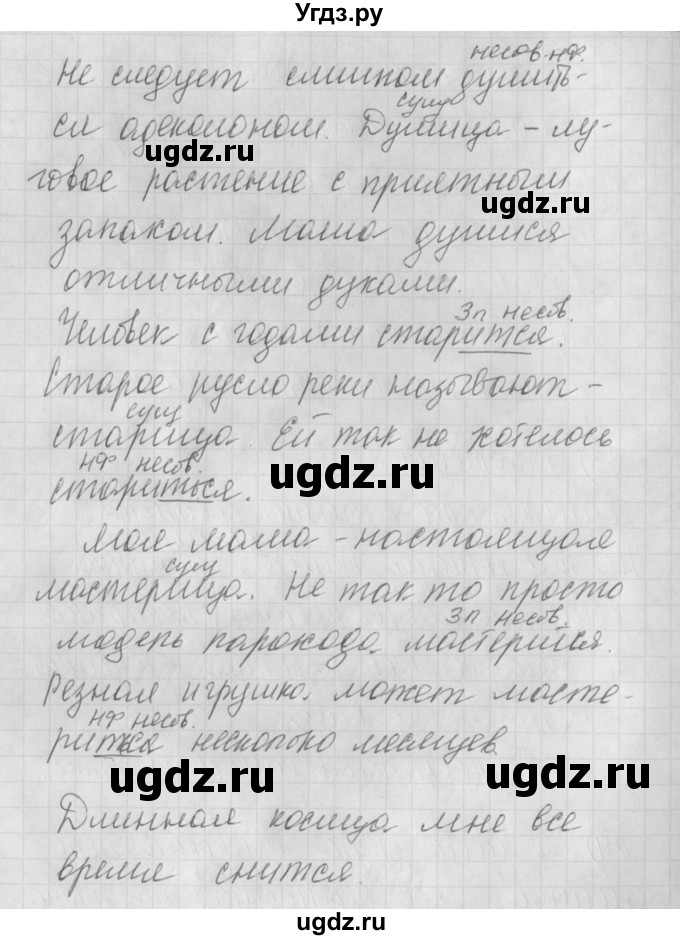 Угдз.ру
несов. нф.
Не следует слишком душить-
ся одеколоном. Душица - лу-
сущ
ugdz.ru
говое растение с приятным
ugdz.ru
запахом. Мама душится
отличными духами.
3л несов.
Человек с годами старится.
Старое русло реки называют -
сущ
старица. Ей так не хотелось
нф несов.
стариться.
ugdz.ru
Моя мама - настоящая
сущ
мастерица. Не так то просто
3л несов.
модель парохода мастерится.
ugdz.ru
Резная игрушка может масте-
нф несов.
рится несколько месяцев
ugdz.ru
ugdz.ru
Длинная косица мне все
время снится.
ugdz.ru